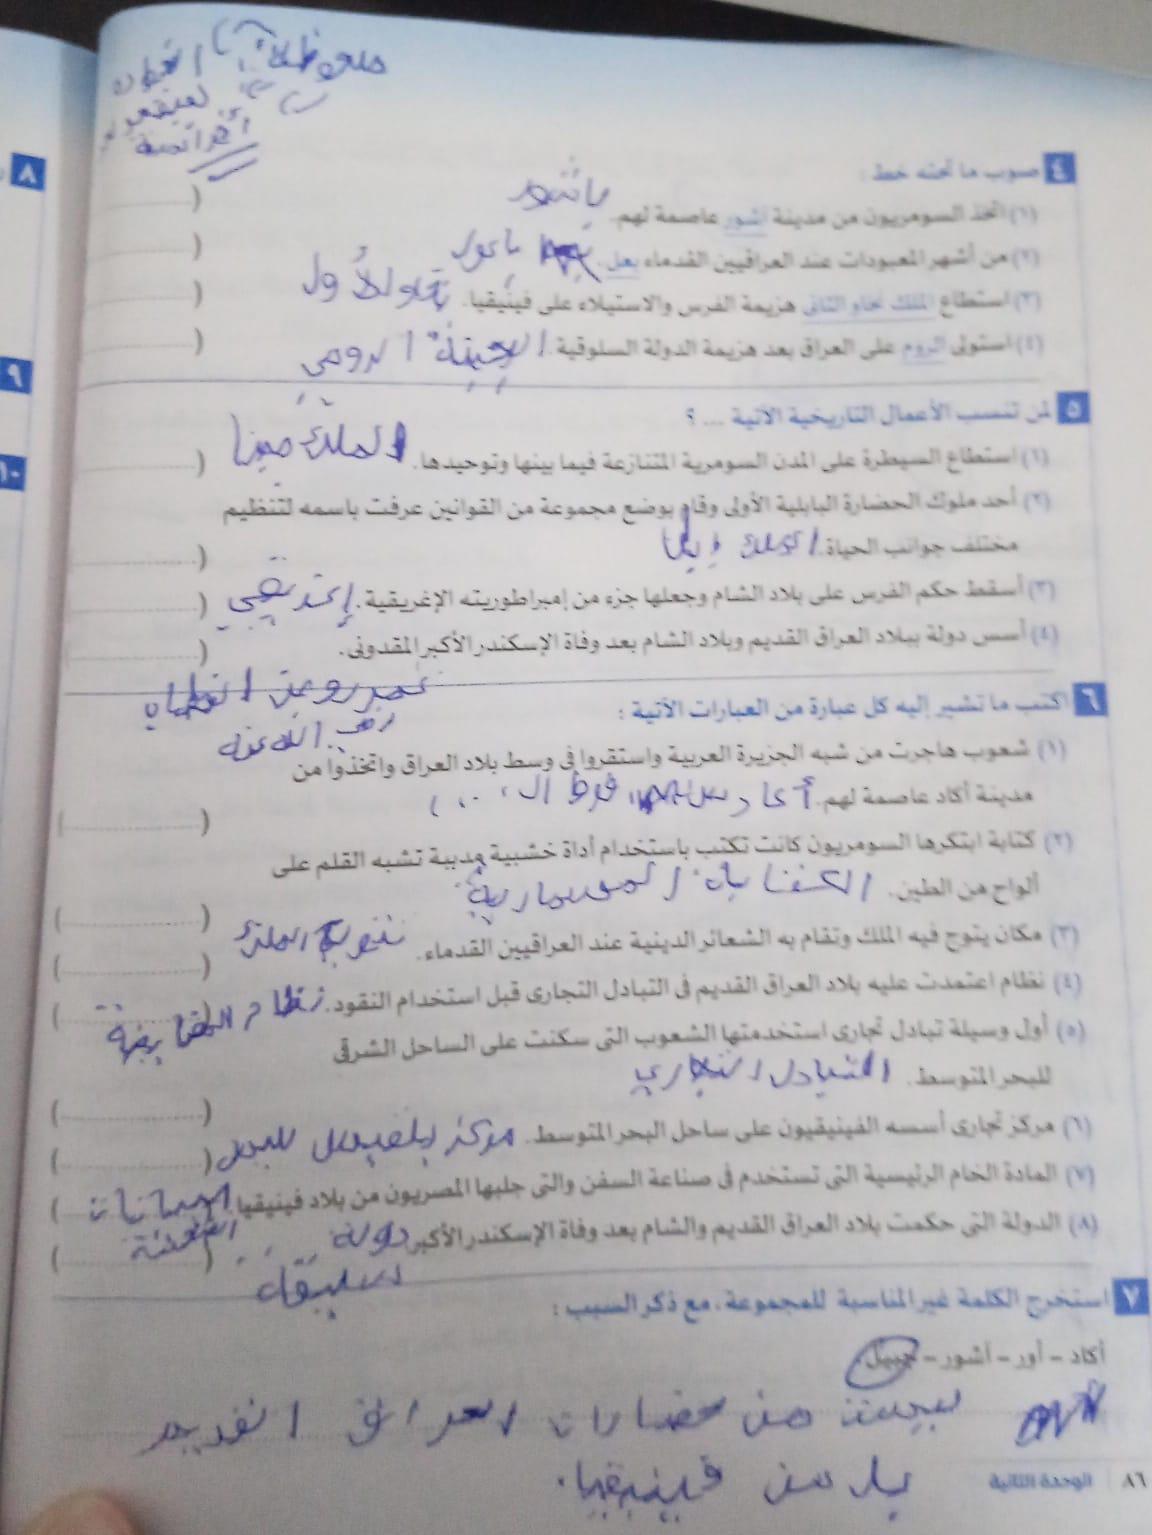 ملحوظة: الخط
لغيقعيو
٤ صوب ما تحته خط:
(١) اتخذ السومريون من مدينة أشور عاصمة لهم.
(٢) من أشهر المعبودات عند العراقيين القدماء بعل.
(٣) استطاع الملك نخاو الثانى هزيمة الفرس والاستيلاء على فينيقيا. نخاو الأول
(٤) استولى الروم على العراق بعد هزيمة الدولة السلوقية.
٥ لمن تنسب الأعمال التاريخية الآتية ...؟
(١) استطاع السيطرة على المدن السومرية المتنازعة فيما بينها وتوحيدها. الملك مينا
(٢) أحد ملوك الحضارة البابلية الأولى وقام بوضع مجموعة من القوانين عرفت باسمه لتنظيم
مختلف جوانب الحياة. الملك إيلا
(٣) أسقط حكم الفرس على بلاد الشام وجعلها جزء من إمبراطوريته الإغريقية.
(٤) أسس دولة ببلاد العراق القديم وبلاد الشام بعد وفاة الإسكندر الأكبر المقدونى.
عمرو بن الخطاب
رضي الله عنه
٦ اكتب ما تشير إليه كل عبارة من العبارات الآتية:
(١) شعوب هاجرت من شبه الجزيرة العربية واستقروا فى وسط بلاد العراق واتخذوا من
مدينة أكاد عاصمة لهم.
(٢) كتابة ابتكرها السومريون كانت تكتب باستخدام أداة خشبية مدببة تشبه القلم على
ألواح من الطين. الكتابة المسمارية
(٣) مكان يتوج فيه الملك وتقام به الشعائر الدينية عند العراقيين القدماء. تتويج الملك
(٤) نظام اعتمدت عليه بلاد العراق القديم فى التبادل التجارى قبل استخدام النقود. نظام المقايضة
(٥) أول وسيلة تبادل تجارى استخدمتها الشعوب التى سكنت على الساحل الشرقى
للبحر المتوسط. التبادل التجاري
(٦) مركز تجارى أسسه الفينيقيون على ساحل البحر المتوسط. مركز
(٧) المادة الخام الرئيسية التى تستخدم فى صناعة السفن والتى جلبها المصريون من بلاد فينيقيا.
(٨) الدولة التى حكمت بلاد العراق القديم والشام بعد وفاة الإسكندر الأكبر. دولة
٧ استخرج الكلمة غير المناسبة للمجموعة، مع ذكر السبب:
أكاد - أور - أشور - جبيل.
ليست من حضارات العراق القديم
بل من فينيقيا.
٨٦ الوحدة الثانية
٨
٩
١٠